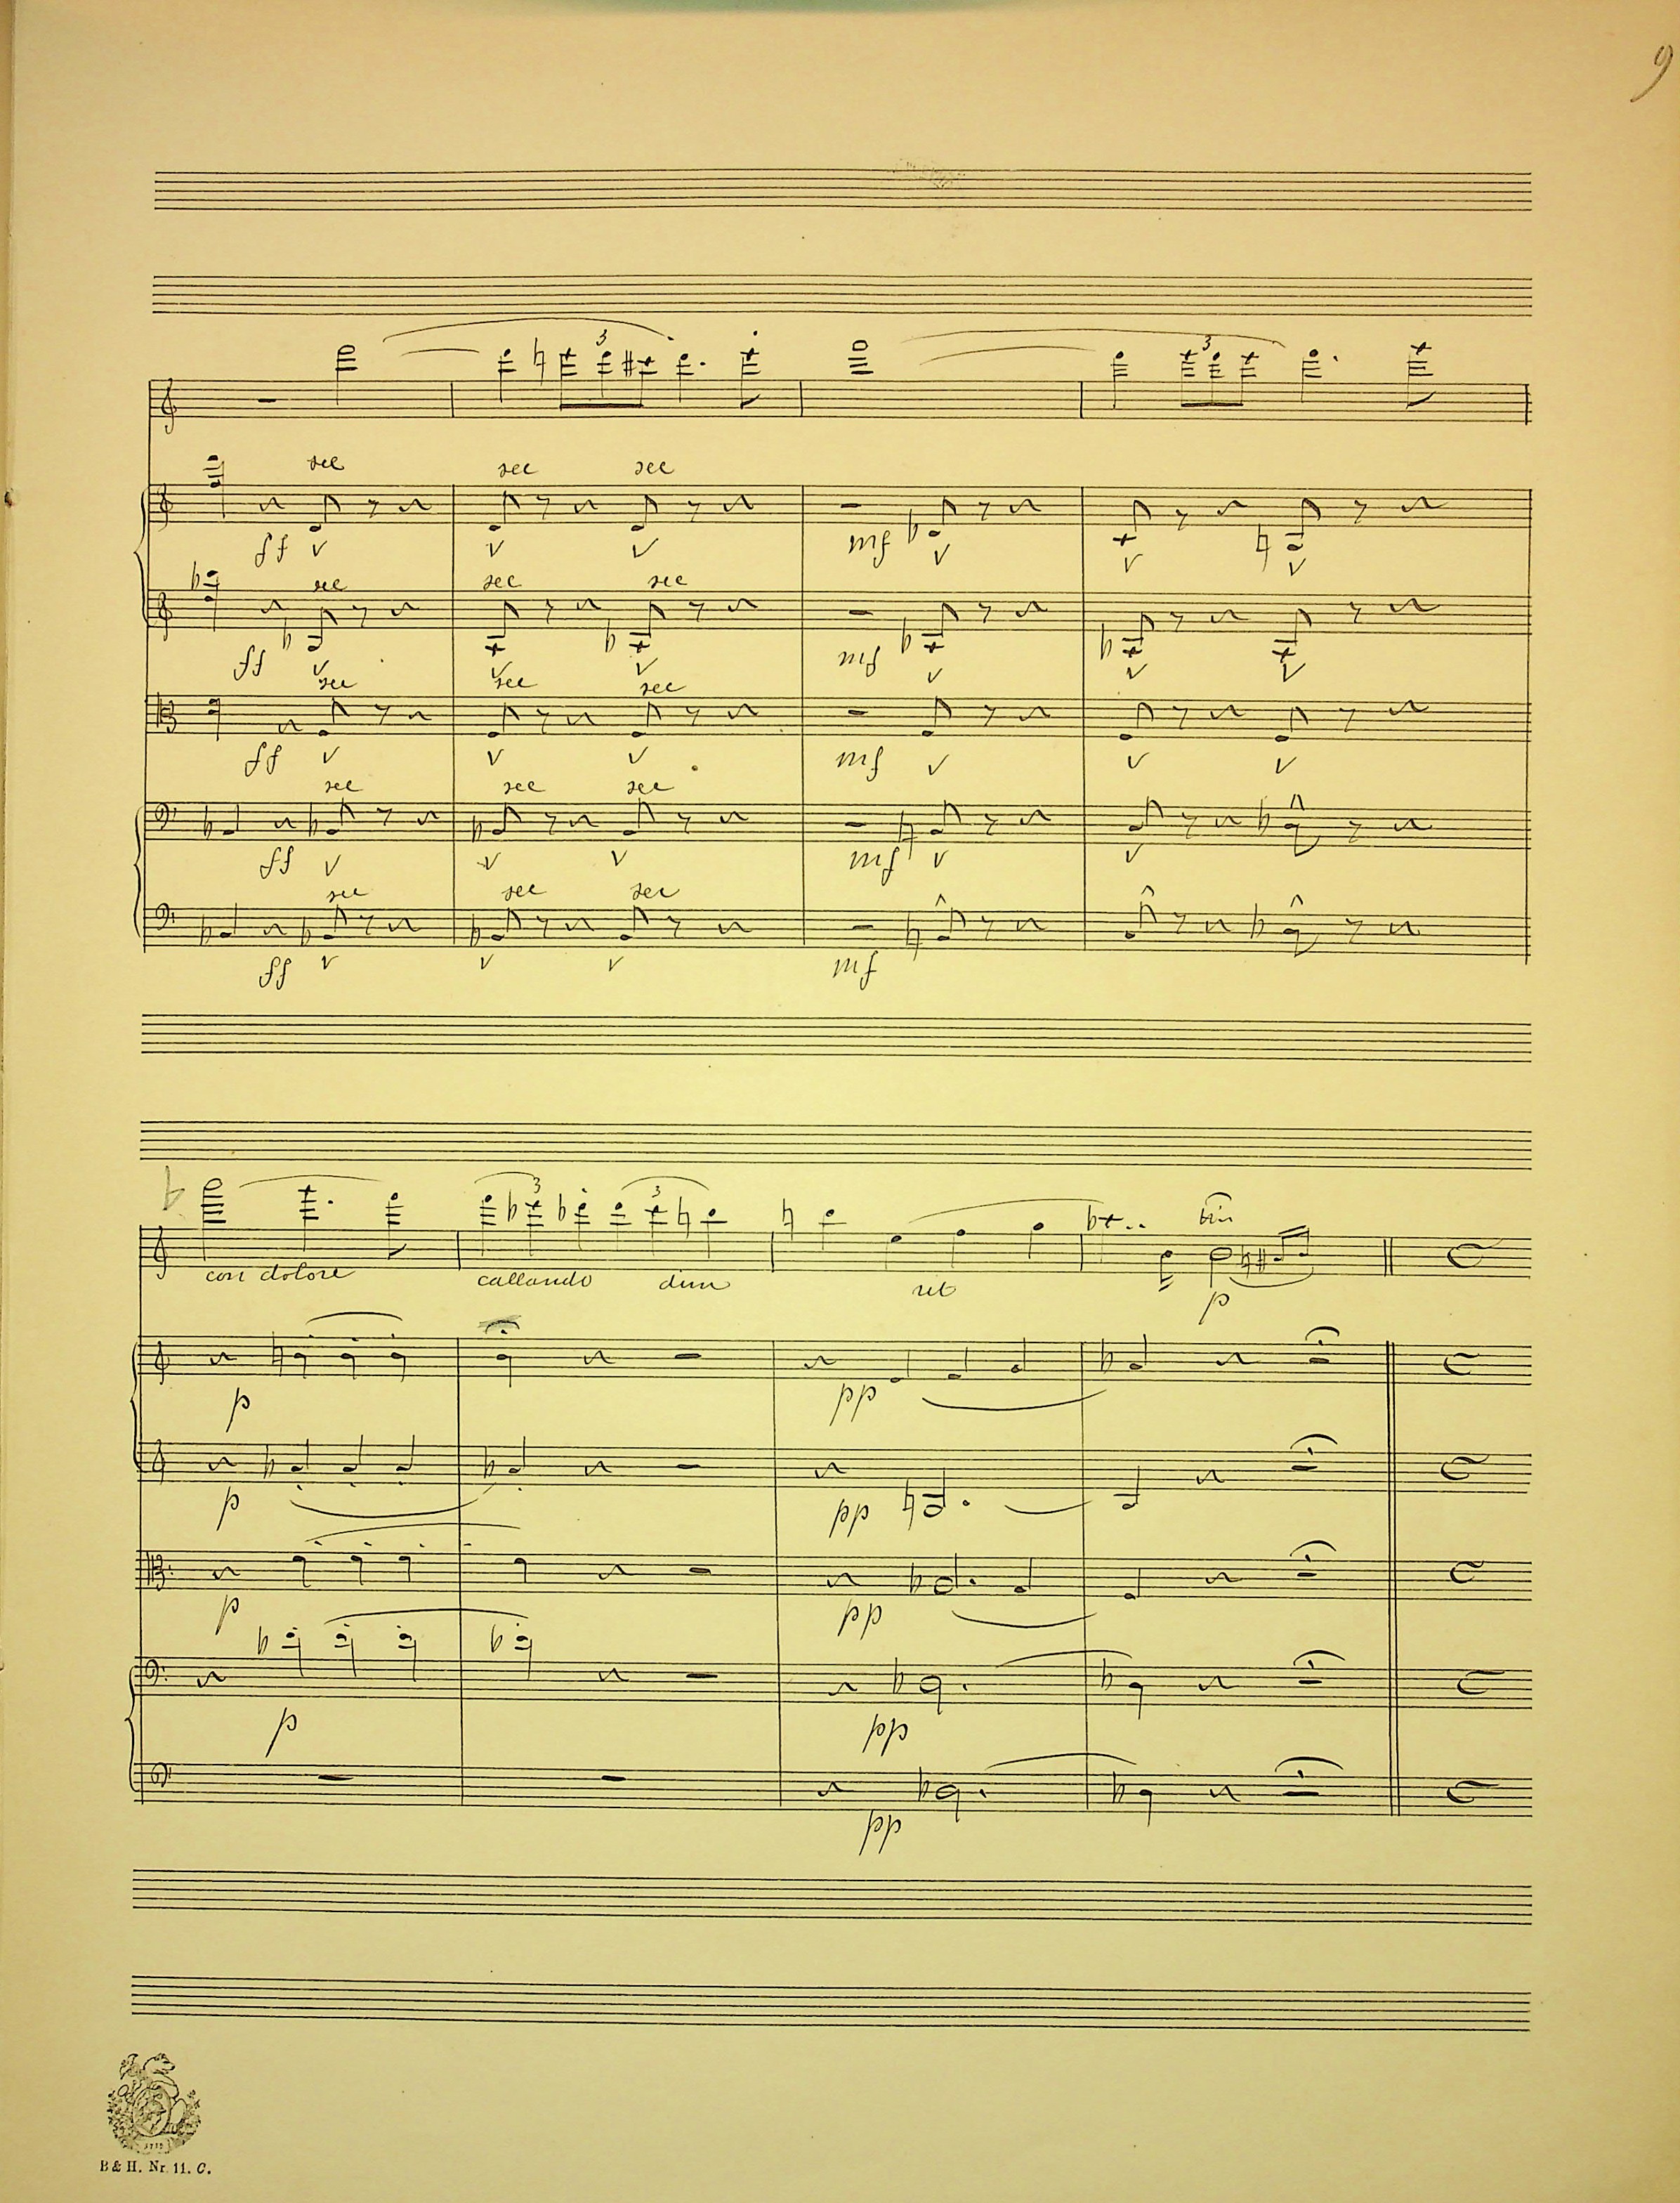 9
3 3
sec sec sec
ff mf
sec sec sec
ff mf
sec sec sec
ff mf
sec sec sec
ff mf
sec sec sec
ff mf
3 3
con dolore callando dim rit p
p pp
p pp
p pp
p pp
pp
1719
B & H. Nr. 11. C.